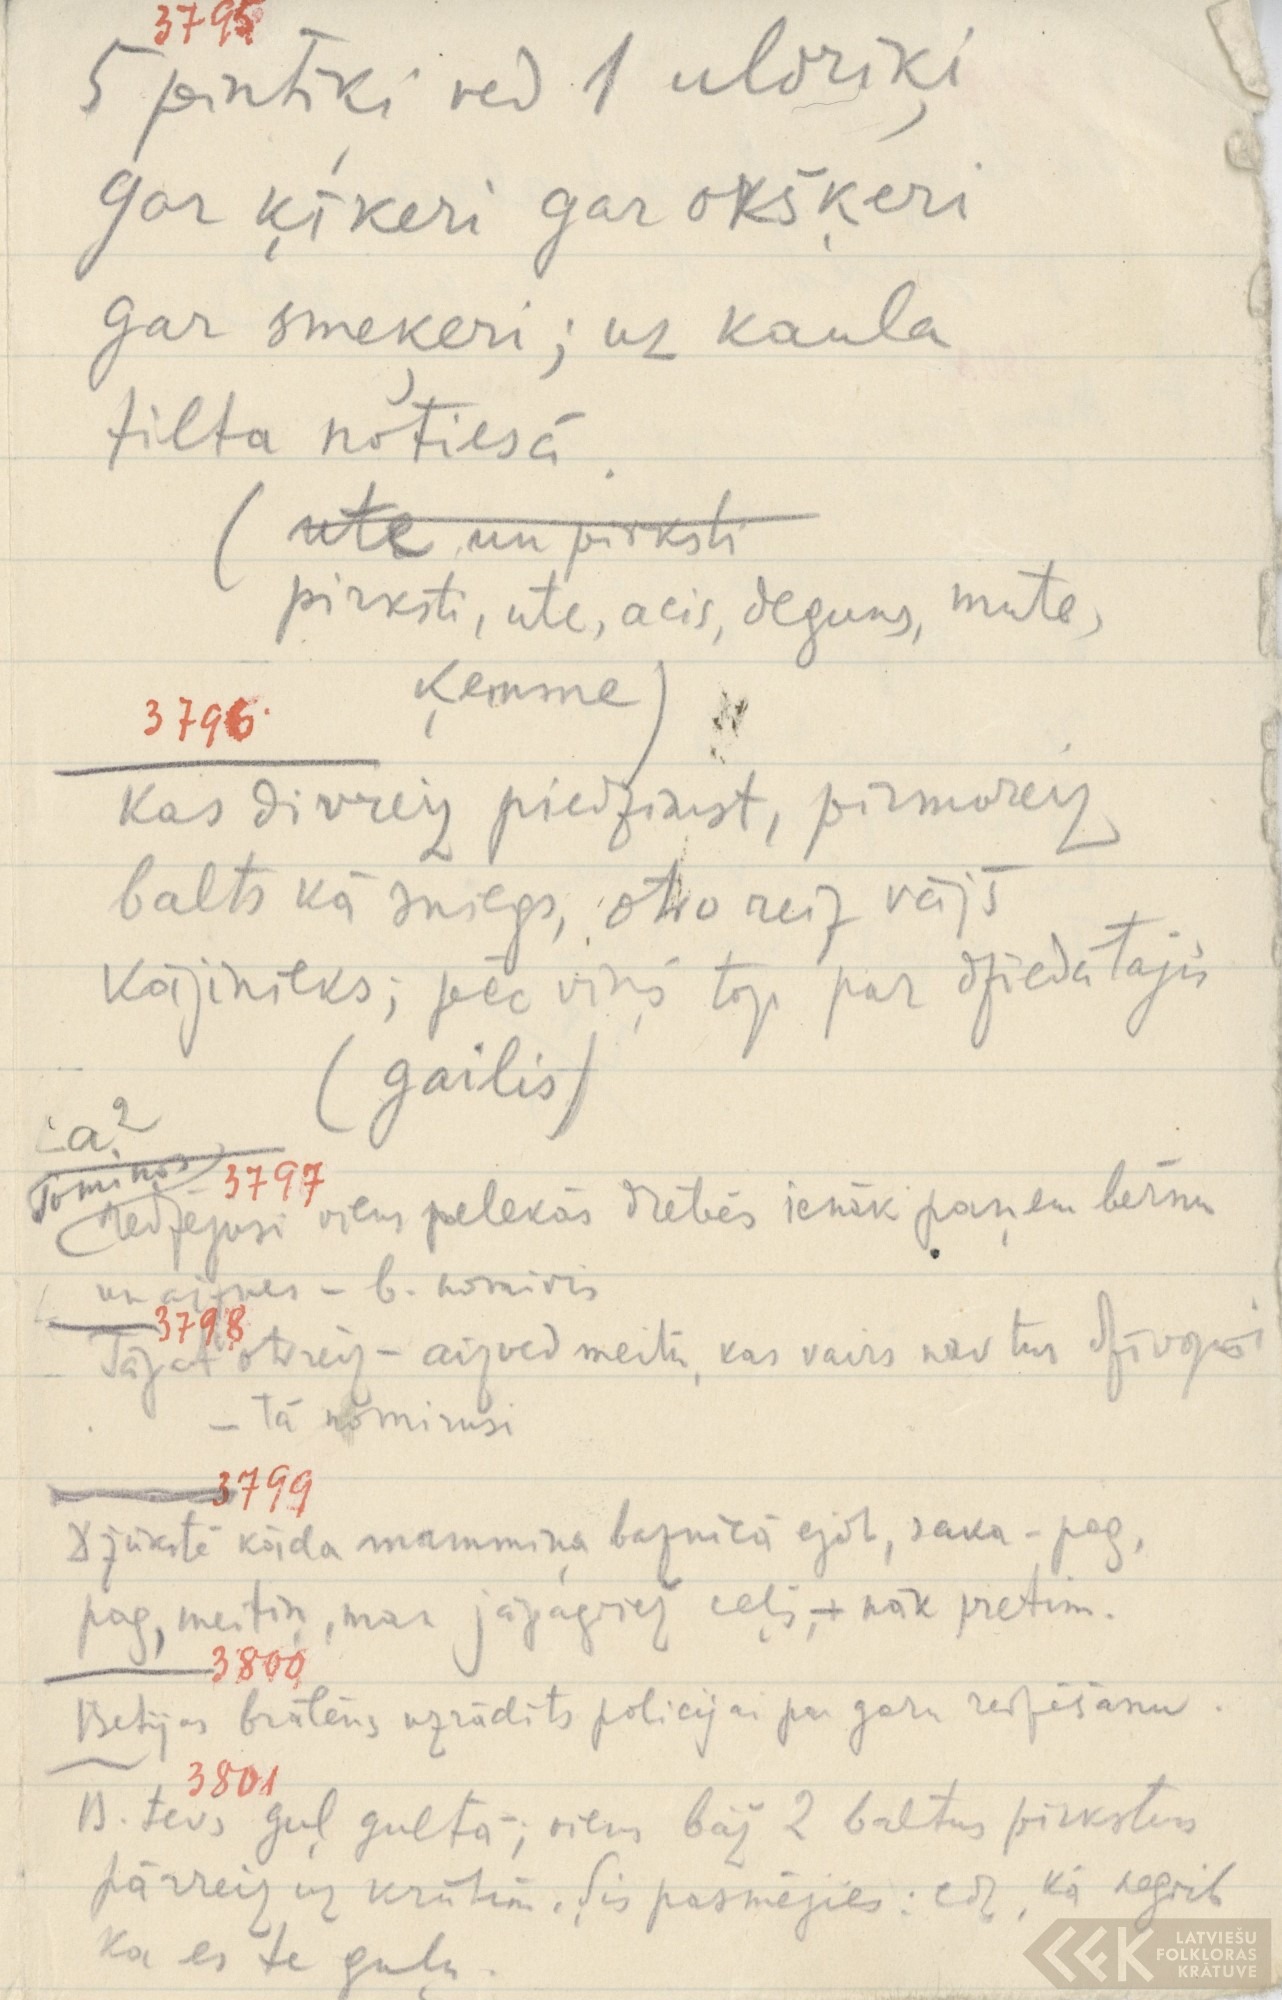 3795
5 pintiķi ved 1 uldriķi
gar ķīkeri gar okšķeri
gar smeķeri; uz kaula
tilta notiesā.
(ute un pirksti
pirksti, ute, acis, deguns, mute,
ķemme)
3796.
Kas divreiz piedzimst, pirmoreiz
balts kā sniegs, otro reiz vājš
kājinieks; pēc viņš top par dziedātājis
(gailis)
a2
3797
redzējusi viens pelekās drēbēs ienāk paņem bērnu
un aiznes – b. nomiris
3798
Tāpat otreiz – aizved meitu, kas vairs nav tur
– tā nomirusi
3799
Džūkstē kāda mammiņa baznīcā ejot, saka – pag,
pag, meitiņ, man jāpagriež ceļš, + nāk pretim.
3800
Betijas brālēns uzrādīts policijai par garu redzēšanu.
3801
B. tevs guļ gultā; viens bāž 2 baltus pirkstus
pārreiz uz krūtīm. Šis pasmējies: edz, kā negrib
ka es te guļu.
LATVIEŠU
FOLKLORAS
KRĀTUVE